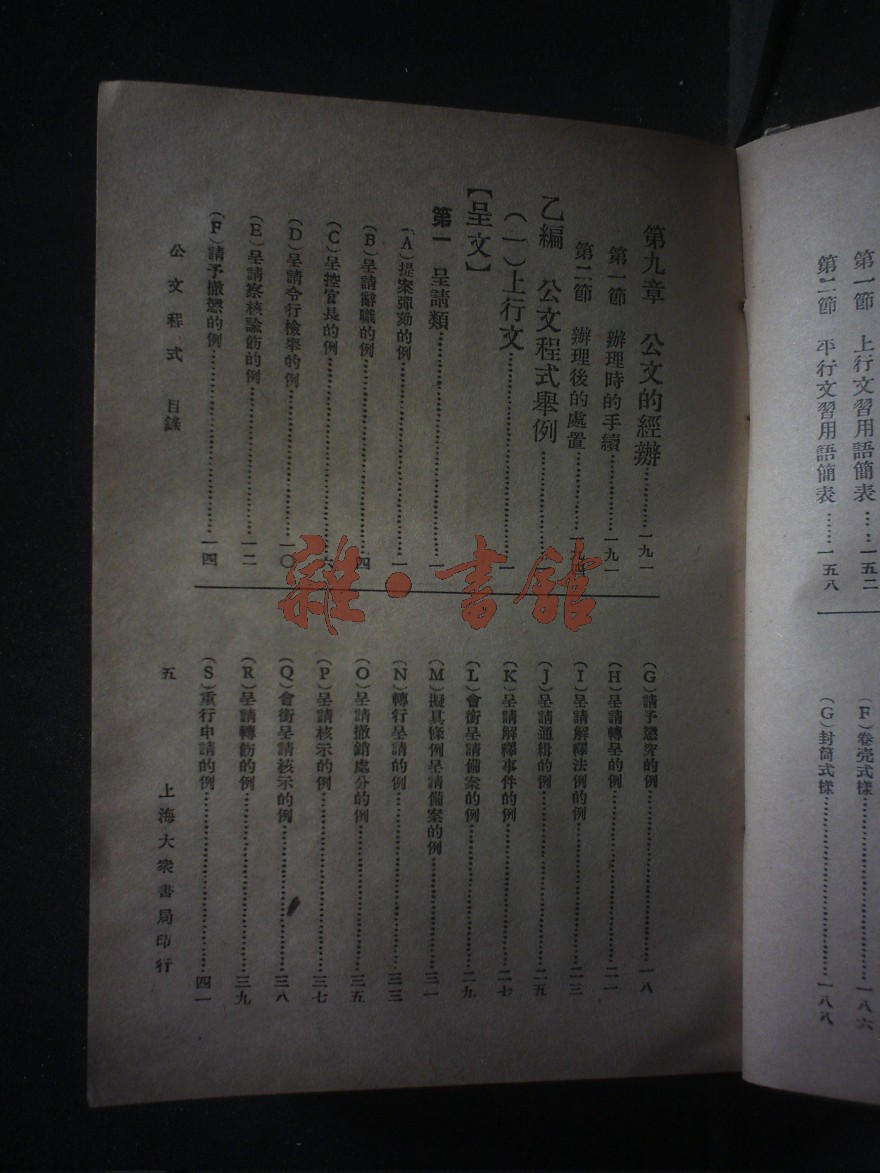 第一節　上行文習用語簡表……一五二
第二節　平行文習用語簡表……一五八
(F)卷壳式樣……一八六
(G)封筒式樣……一八八
第九章　公文的經辦……一九一
第一節　辦理時的手續……一九一
第二節　辦理後的處置……一九四
乙編　公文程式舉例……
(一)上行文……一
【呈文】
第一　呈請類……一
(A)提案彈劾的例……一
(B)呈請辭職的例……四
(C)呈控官長的例……六
(D)呈請令行檢舉的例……一〇
(E)呈請察核諭飭的例……一二
(F)請予撤懲的例……一四
(G)請予懲究的例……一八
(H)呈請轉呈的例……二一
(I)呈請解釋法例的例……二三
(J)呈請通緝的例……二五
(K)呈請解釋事件的例……二七
(L)會銜呈請備案的例……二九
(M)擬具條例呈請備案的例……三一
(N)轉行呈請的例……三三
(O)呈請撤銷處分的例……三五
(P)呈請核示的例……三七
(Q)會銜呈請核示的例……三八
(R)呈請轉飭的例……三九
(S)重行申請的例……四一
公文程式　目錄
五
上海大衆書局印行
雜·書館